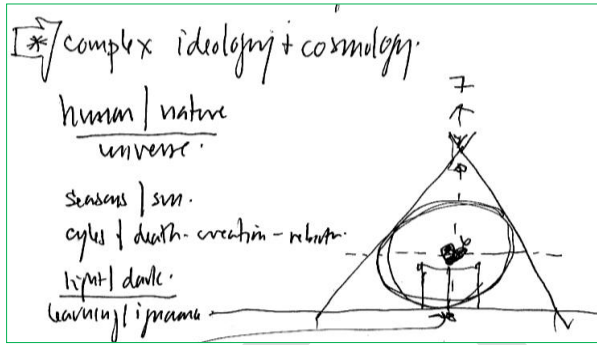 [*] complex ideology + cosmology.
human | nature
universe.
seasons | sun.
cycles of death - creation - rebirth.
light | dark.
learning |
7